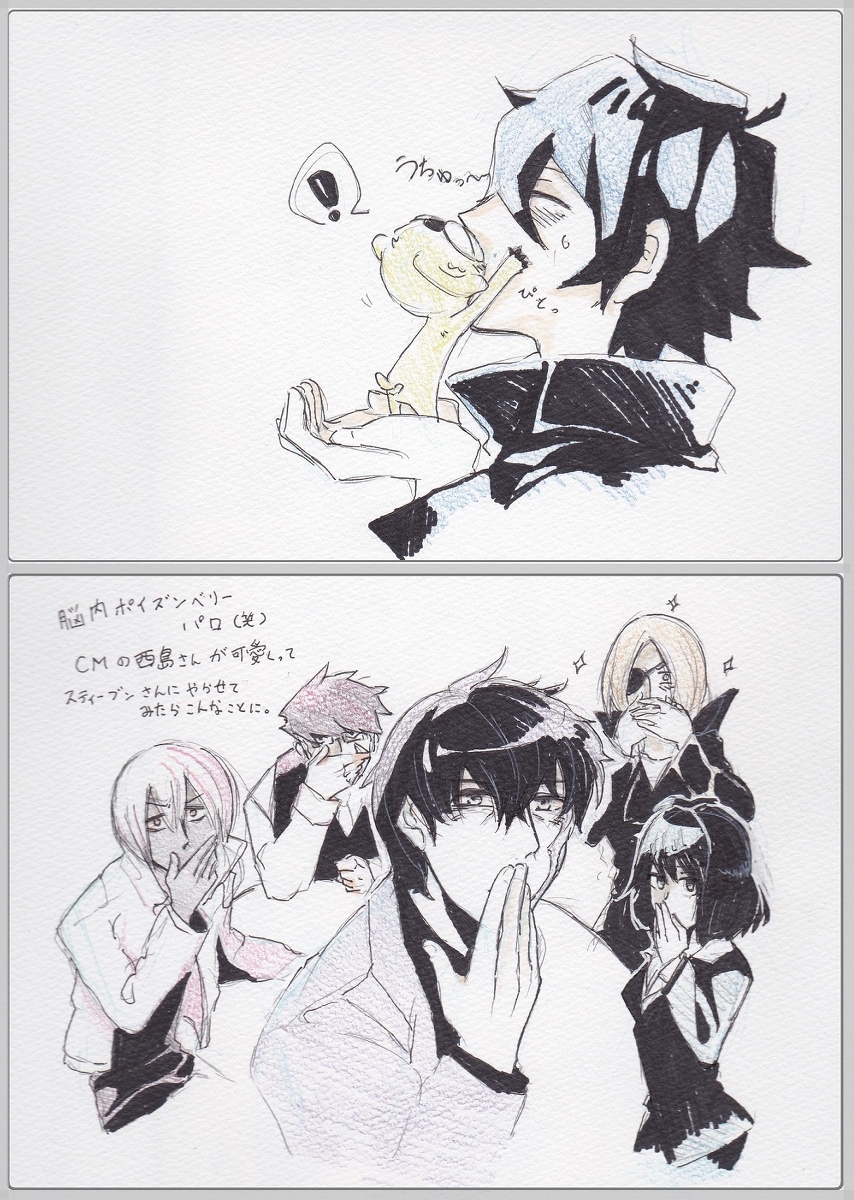 うちゅっ〜
ぴとっ
脳内ポイズンベリー
パロ(笑)
CMの西島さんが可愛くって
スティーブンさんにやらせて
みたらこんなことに。